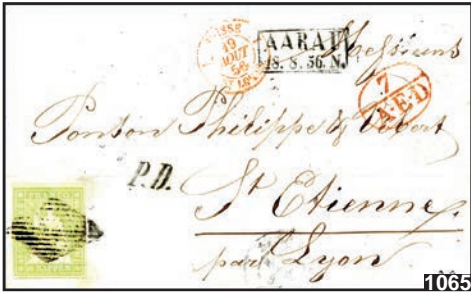 19
AOUT
56
AARAU
18. 8. 56. N.
Messieurs
7
A.E.D
Ponton Philippe &
P.D.
St Etienne,
par Lyon
1065